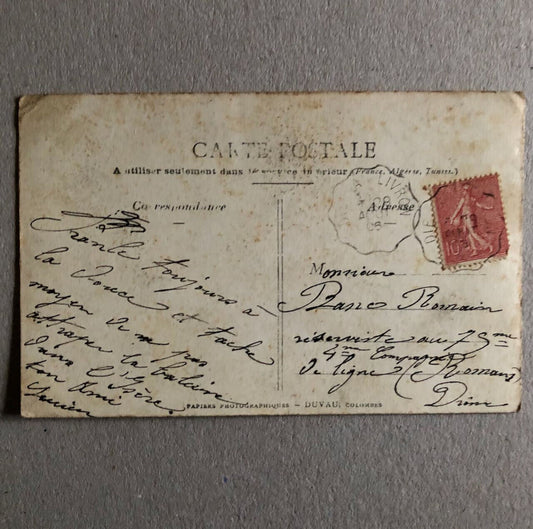 CARTE POSTALE
A utiliser seulement dans le service intérieur (France, Algérie, Tunisie.)
Correspondance
Adresse
toujours à
la douce et tache
moyen de ne pas
attraper la baleine
dans l'Isère
ton ami
Monsieur
Romain
réserviste au 75me
4me Compagnie
de ligne (Romans)
Drôme
LIVR
10c
PAPIERS PHOTOGRAPHIQUES – DUVAU, COLOMBES